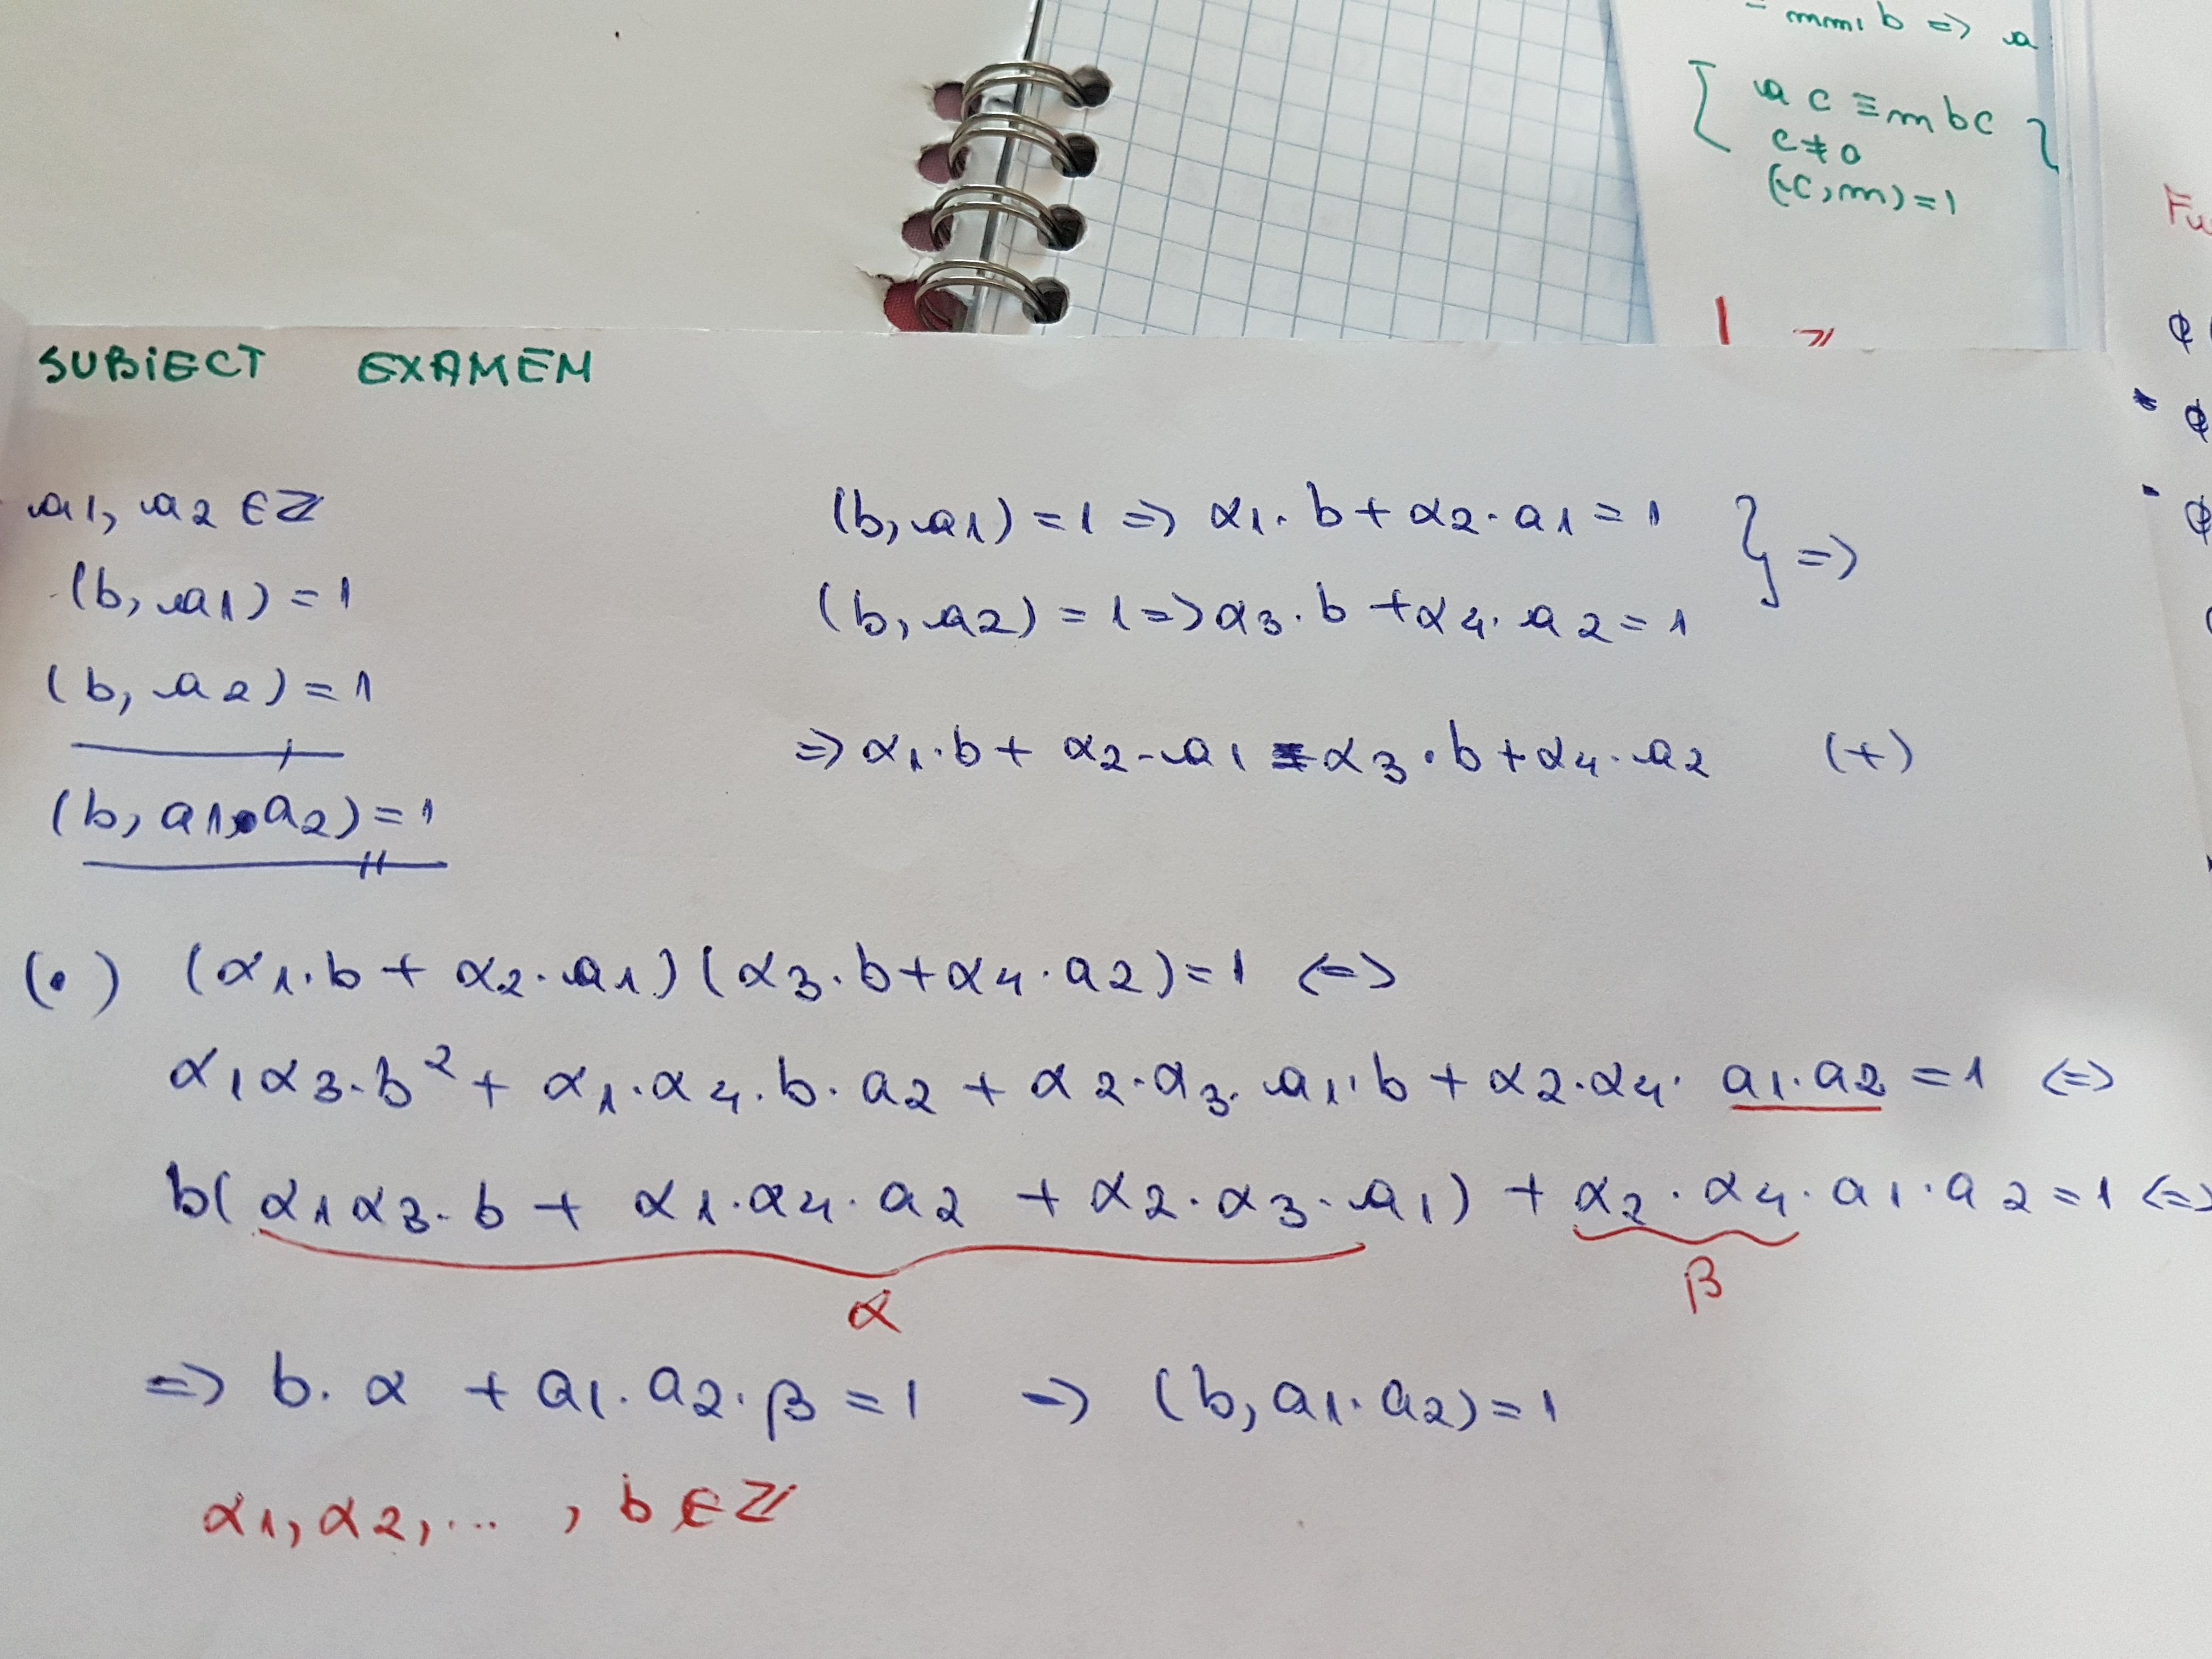 = mm₁ b => a
ac ≡m bc
c≠0
(c,m)=1
Fu
SUBIECT EXAMEN
a1, a2 ∈ ℤ
(b, a1) = 1
(b, a2) = 1
(b, a1·a2) = 1
(b, a1) = 1 => α1·b + α2·a1 = 1
(b, a2) = 1 => α3·b + α4·a2 = 1
} =>
=> α1·b + α2·a1 = α3·b + α4·a2 (+)
(•) (α1·b + α2·a1)(α3·b + α4·a2) = 1 <=>
α1α3·b² + α1·α4·b·a2 + α2·α3·a1·b + α2·α4·a1·a2 = 1 <=>
b(α1α3·b + α1·α4·a2 + α2·α3·a1) + α2·α4·a1·a2 = 1 <=>
α β
=> b·α + a1·a2·β = 1 => (b, a1·a2) = 1
α1, α2, ... , b ∈ ℤ